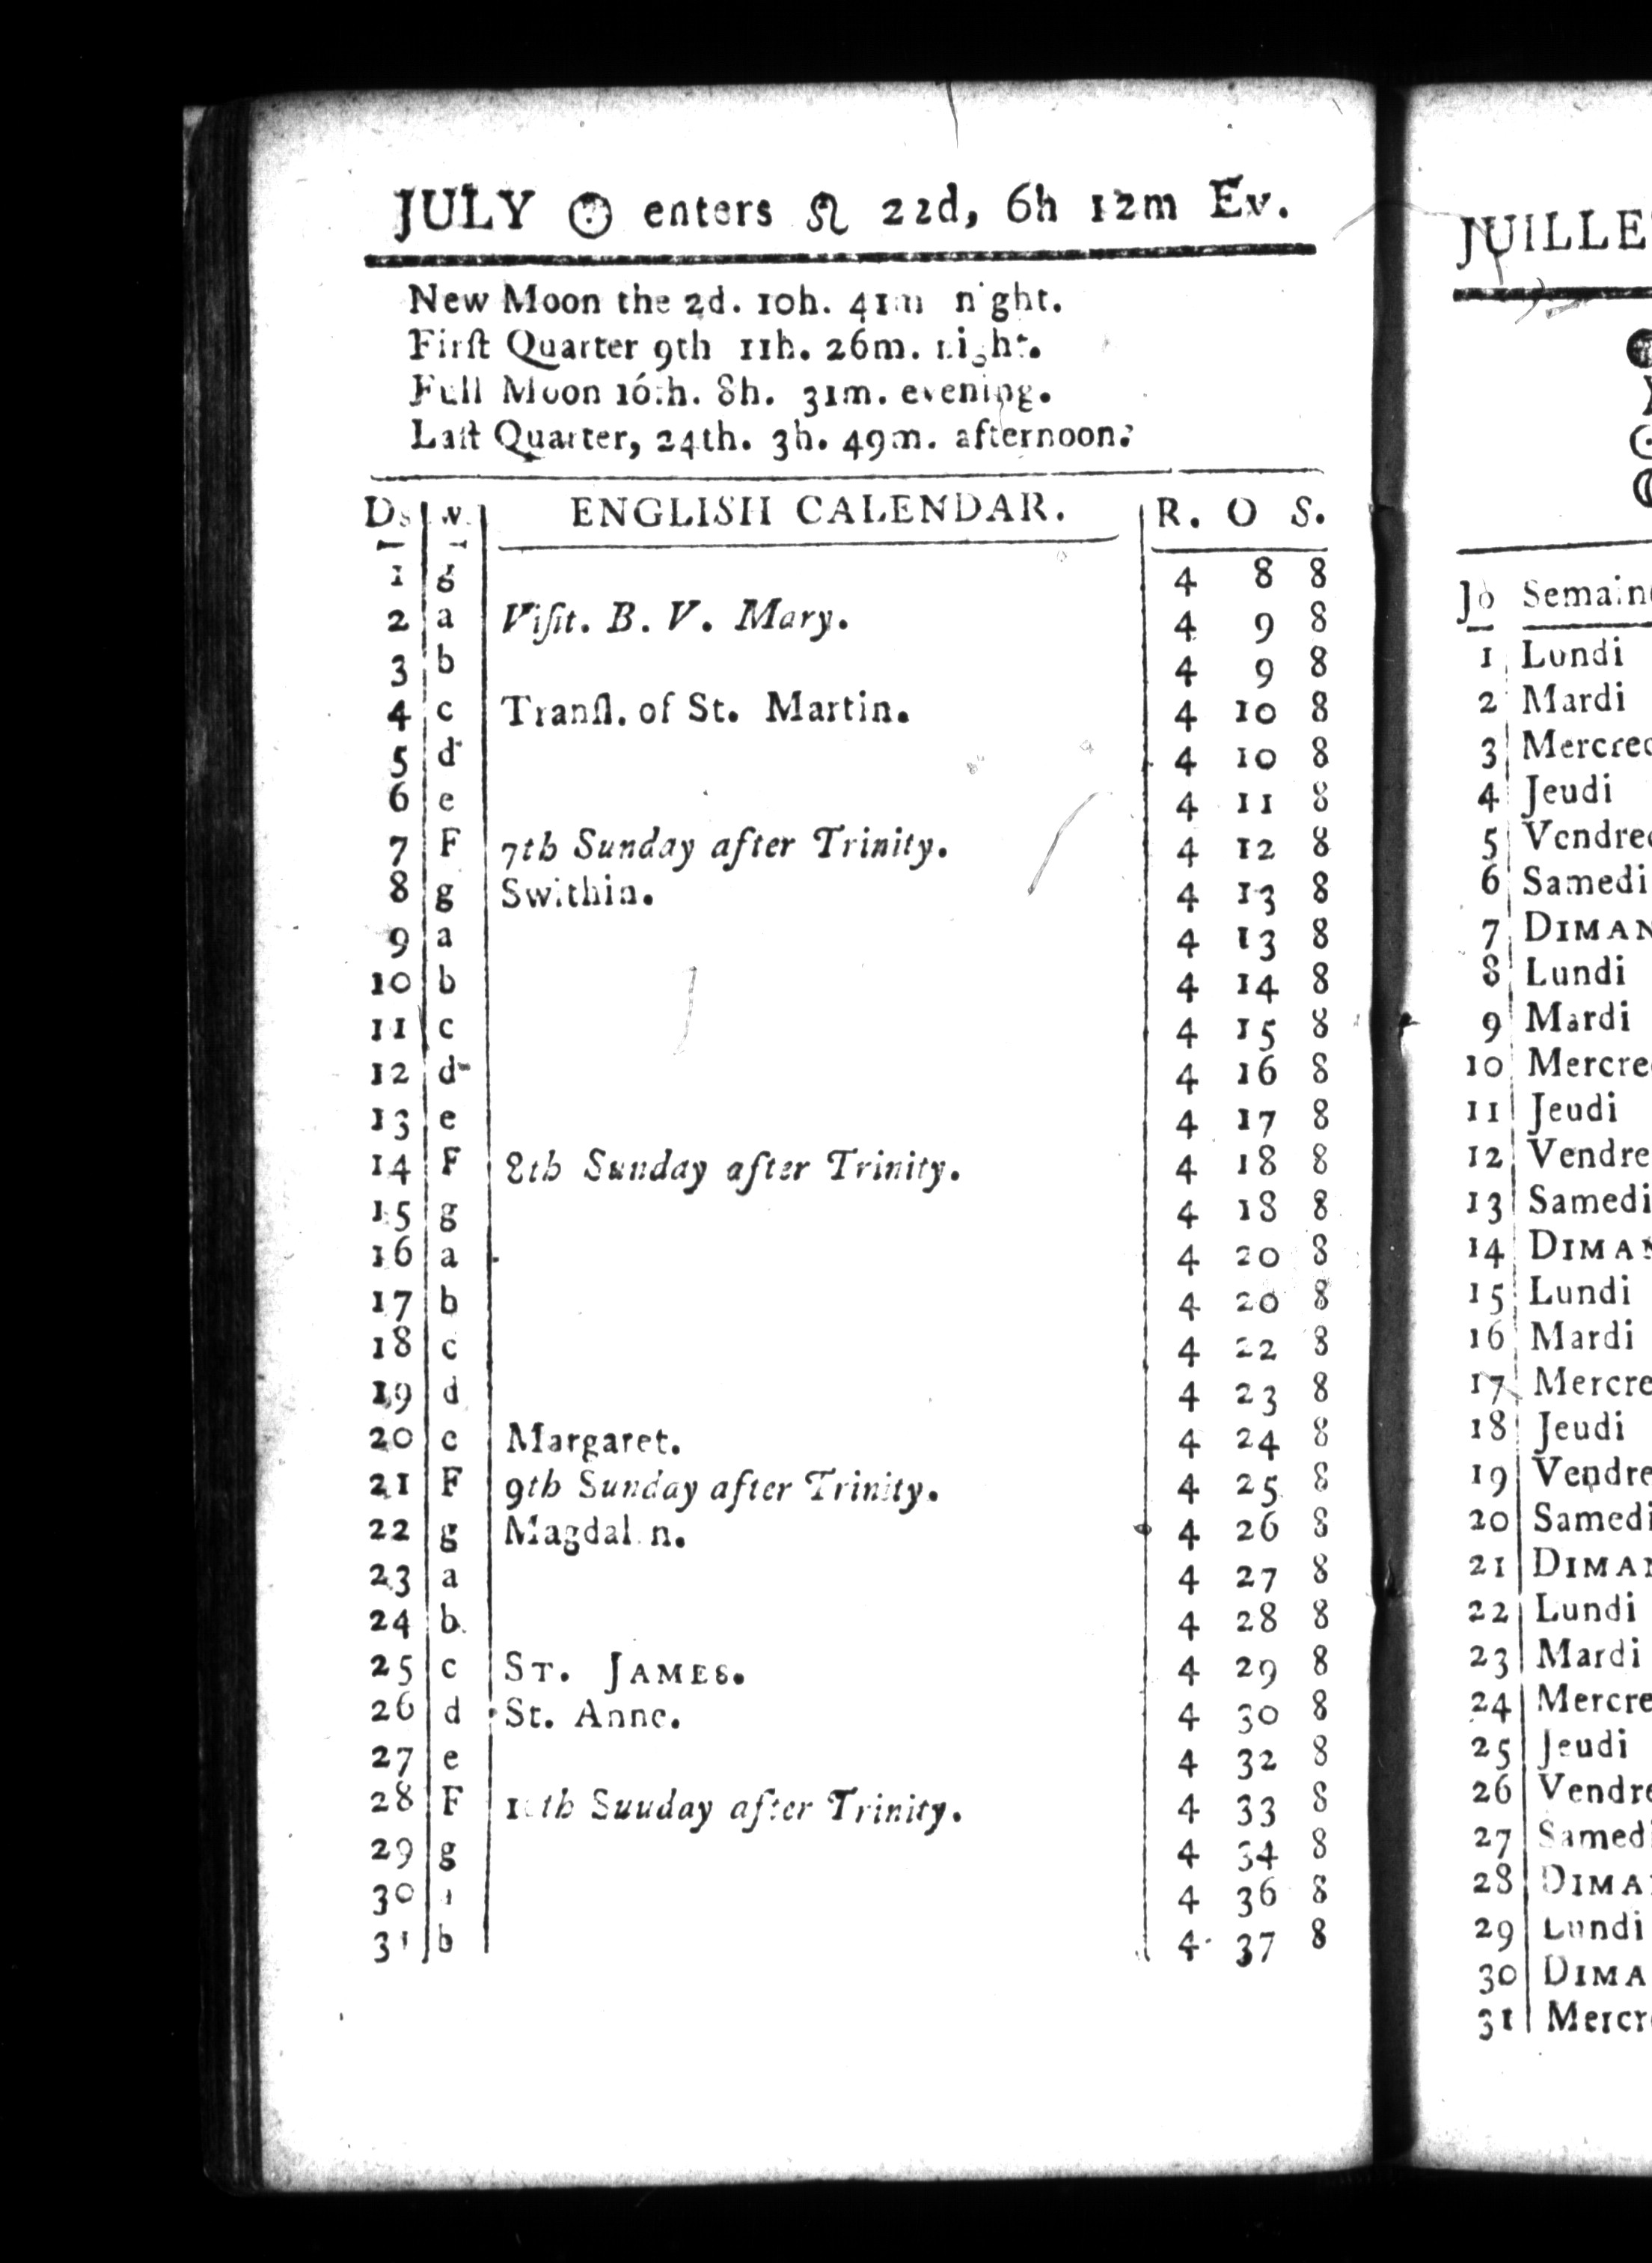 JULY ☉ enters ♌ 22d, 6h 12m Ev.
New Moon the 2d. 10h. 41m night.
Firſt Quarter 9th 11h. 26m. night.
Full Moon 16th. 8h. 31m. evening.
Laſt Quarter, 24th. 3h. 49m. afternoon.
Ds w. ENGLISH CALENDAR. R. O S.
1 g 4 8 8
2 a Viſit. B. V. Mary. 4 9 8
3 b 4 9 8
4 c Tranſl. of St. Martin. 4 10 8
5 d 4 10 8
6 e 4 11 8
7 F 7th Sunday after Trinity. 4 12 8
8 g Swithin. 4 13 8
9 a 4 13 8
10 b 4 14 8
11 c 4 15 8
12 d 4 16 8
13 e 4 17 8
14 F 8th Sunday aſter Trinity. 4 18 8
15 g 4 18 8
16 a 4 20 8
17 b 4 20 8
18 c 4 22 8
19 d 4 23 8
20 e Margaret. 4 24 8
21 F 9th Sunday after Trinity. 4 25 8
22 g Magdal n. 4 26 8
23 a 4 27 8
24 b 4 28 8
25 c ST. JAMES. 4 29 8
26 d St. Anne. 4 30 8
27 e 4 32 8
28 F 10th Suuday after Trinity. 4 33 8
29 g 4 34 8
30 a 4 36 8
31 b 4 37 8
JUILLE
Jo Semaine
1 Lundi
2 Mardi
3 Mercred
4 Jeudi
5 Vendred
6 Samedi
7 DIMAN
8 Lundi
9 Mardi
10 Mercre
11 Jeudi
12 Vendre
13 Samedi
14 DIMAN
15 Lundi
16 Mardi
17 Mercre
18 Jeudi
19 Vendre
20 Samedi
21 DIMAN
22 Lundi
23 Mardi
24 Mercre
25 Jeudi
26 Vendre
27 Samedi
28 DIMA
29 Lundi
30 DIMA
31 Mercr